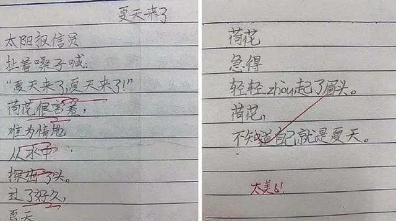 夏天来了
太阳报信员
扯着嗓子喊:
“夏天来了,夏天来了!”
荷花很害羞,
难为情地
从水中
探出了头。
过了好久,
夏天
荷花
急得
轻轻zhou起了眉头。
荷花,
不知道自己就是夏天。
太美了!